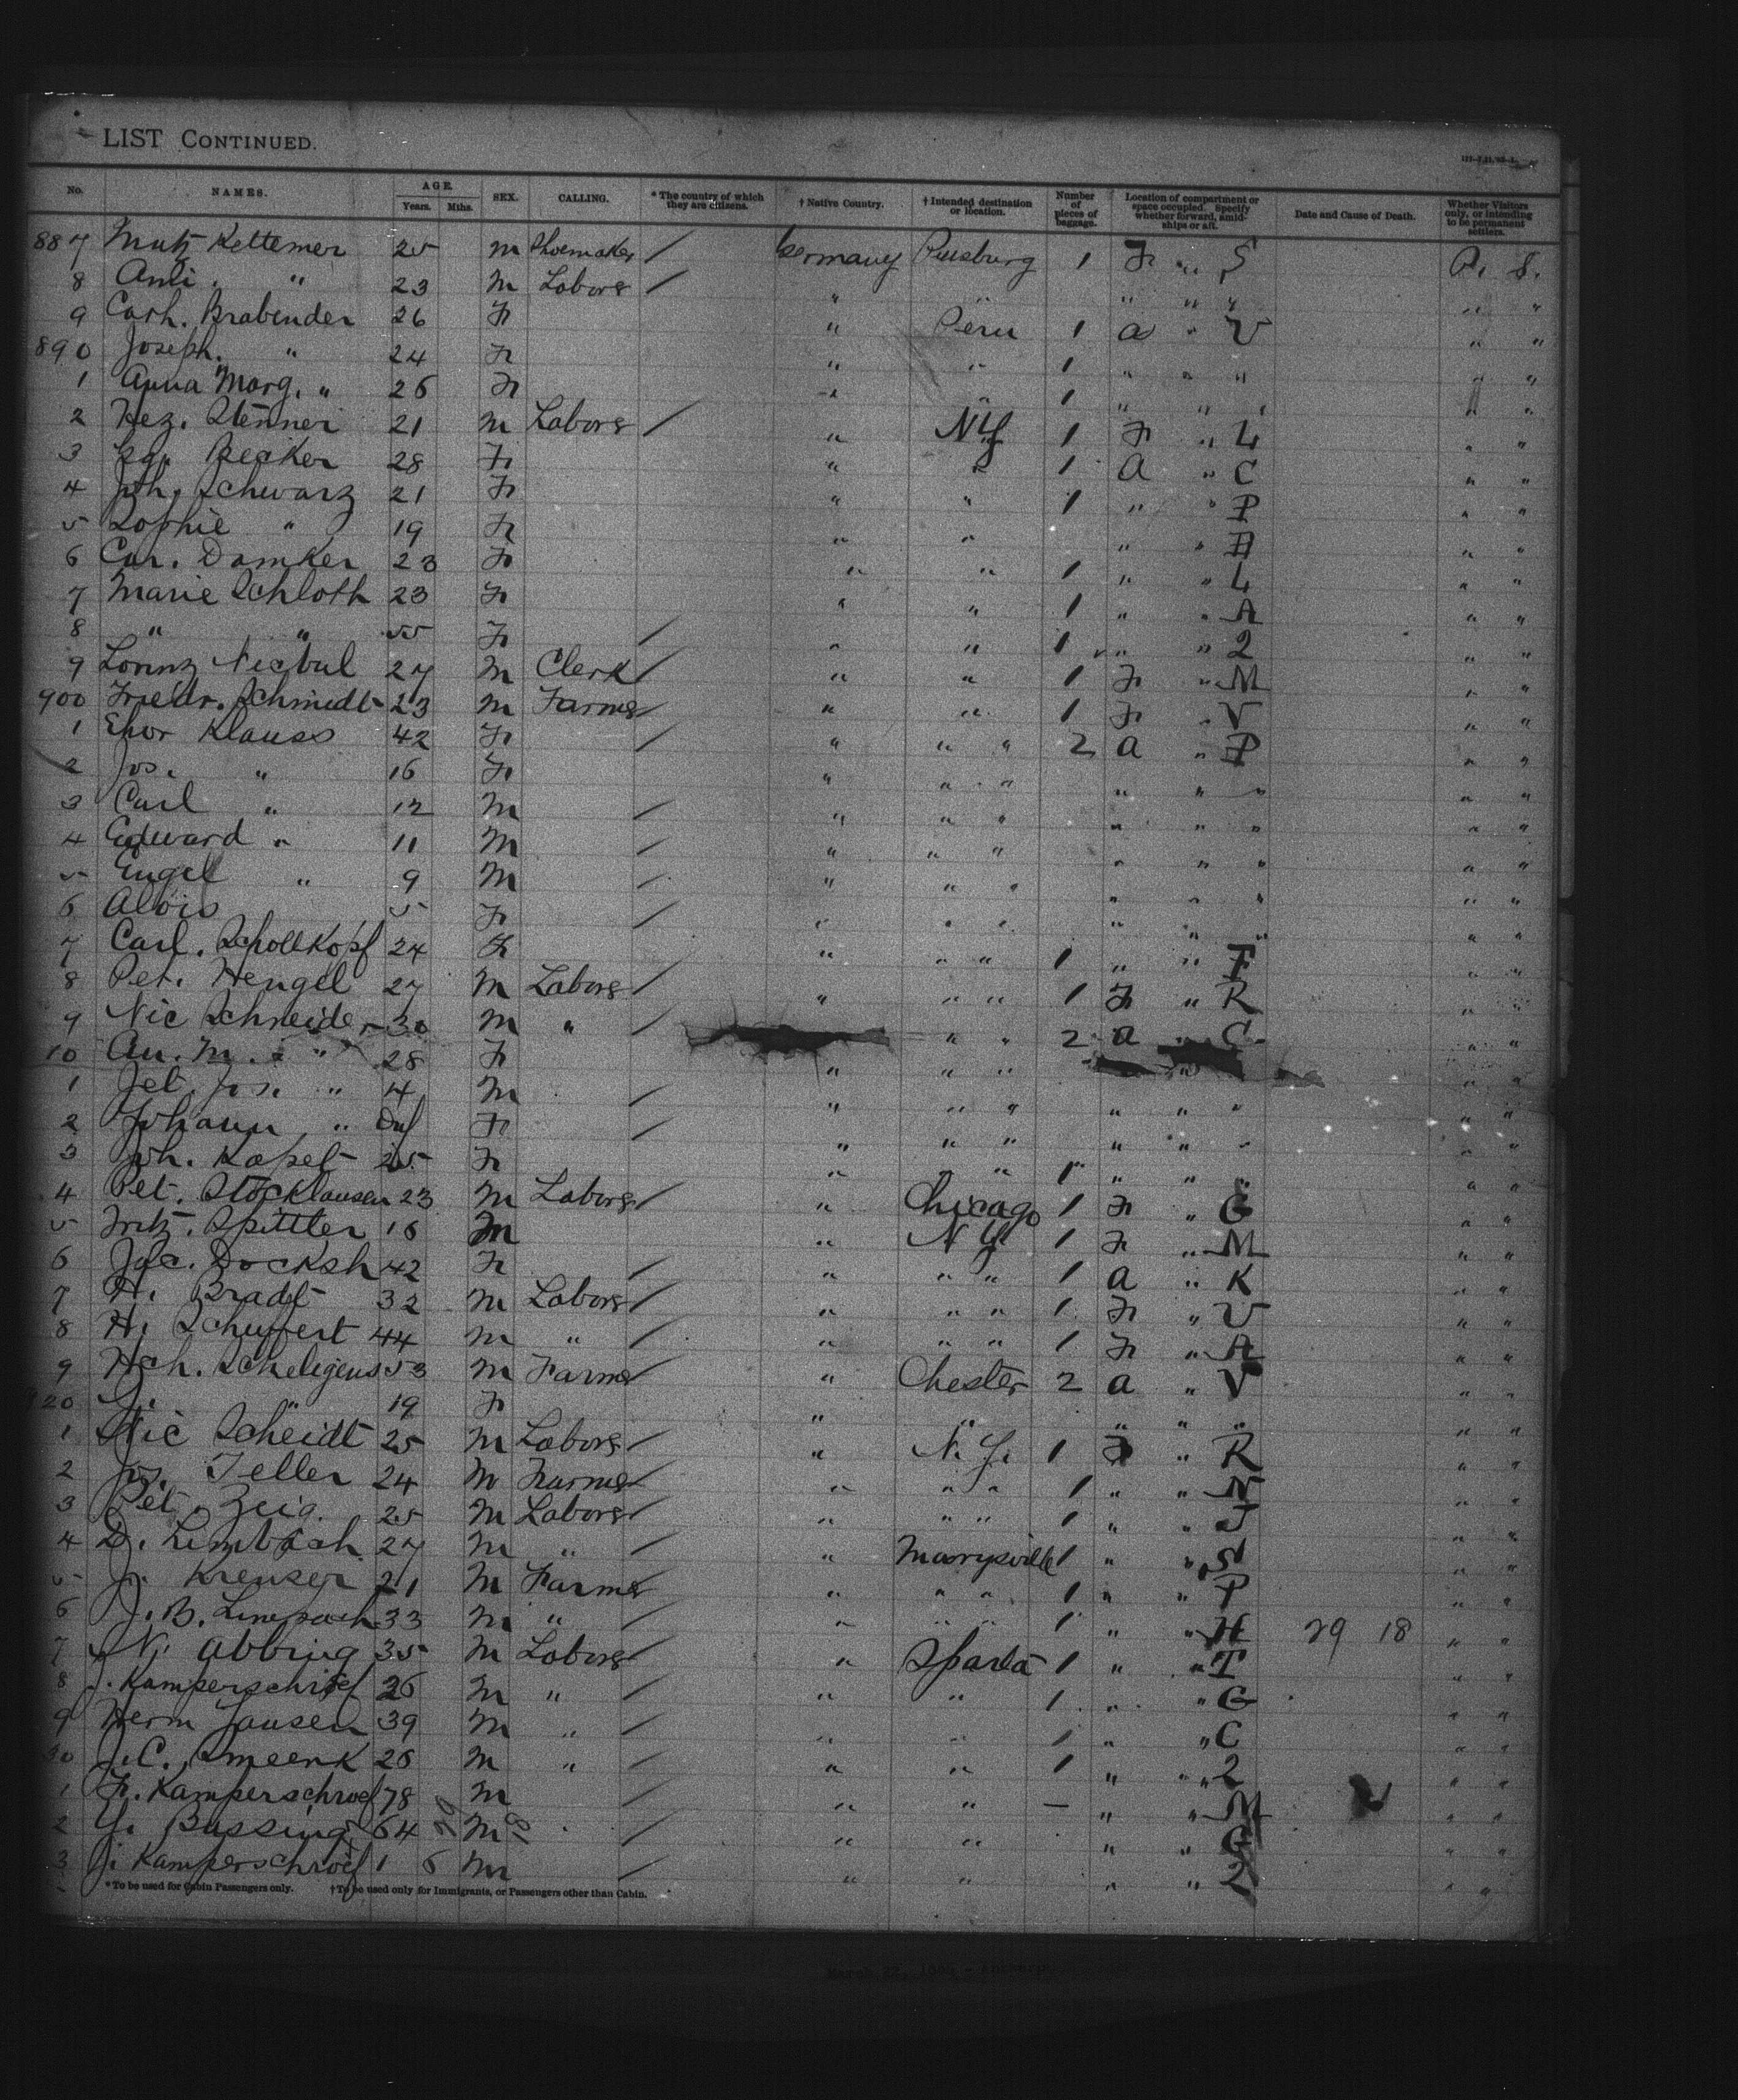 LIST CONTINUED.
No. NAMES. AGE. Years. Mths. SEX. CALLING. * The country of which they are citizens. † Native Country. † Intended destination or location. Number of pieces of baggage. Location of compartment or space occupied. Specify whether forward, amidships or aft. Date and Cause of Death. Whether Visitors only, or intending to be permanent settlers.
887 Matz Kettemer 25 M Shoemaker / Germany 1 Fr " S P. S.
8 " 23 M Labors / " " " " " " "
9 Cath. Brabender 26 Fr " Peru 1 a " V " "
890 Joseph. " 24 Fr " " 1 " " " " "
1 Anna Marg. " 26 Fr " " 1 " " " " "
2 21 M Labors / " NY 1 Fr " L " "
3 Becker 28 Fr " " 1 a " C " "
4 Joh. Schwarz 21 Fr " " 1 " " P " "
5 Sophie " 19 Fr " " " " " "
6 Car. Damker 23 Fr " " 1 " " L " "
7 Marie Schloth 23 Fr " " 1 " " A " "
8 " " 55 Fr / " " 1 " " 2 " "
9 Lorenz 27 M Clerk / " " 1 Fr " M " "
900 Friedr. Schmidt 23 M Farmer / " " 1 Fr " V " "
1 Klauss 42 Fr / " " " 2 a " P " "
2 Jos. " 16 Fr " " " " " " " "
3 Carl " 12 M / " " " " " " " "
4 Edward " 11 M / " " " " " " " "
5 Engel " 9 M / " " " " " " " "
6 Alois 5 Fr / " " " " " " " "
7 Carl. Schollkopf 24 Fr " " " 1 " " F " "
8 Pet. Hengel 27 M Labors / " " " 1 Fr " R " "
9 Nic Schneider 30 M " / " " 2 a " C " "
10 An. M. " 28 Fr " " " " " "
1 Pet. Jos. " 4 M / " " " " " " " "
2 Johann " Inf Fr / " " " " " " " "
3 Joh. Kapel 25 Fr " " " 1 " " " " "
4 Pet. Stocklausen 23 M Labors / " Chicago 1 Fr " G " "
5 Fritz. Spittler 16 M " NY 1 Fr " M " "
6 Jac. Docksh 42 Fr / " " " 1 a " K " "
7 H. Bradt 32 M Labors / " " " 1 Fr " V " "
8 H. Schuffert 44 M " / " " " 1 Fr " A " "
9 Hch. Scheligens 53 M Farmer / " Chester 2 a " V " "
20 " 19 Fr " " " " " " "
1 Nic Scheidt 25 M Labors / " N.Y. 1 " R " "
2 Jos. Teller 24 M Farmer / " " " 1 " " N " "
3 Pet. Zeig. 25 M Labors / " " " 1 " " J " "
4 D. Limbach 27 M " / " Marysville 1 " " S " "
5 J. Kreuser 21 M Farmer / " " " 1 " " P " "
6 J. B. Limpach 33 M " / " " " 1 " " H 29 18 " "
7 N. Abbring 35 M Labors / " Sparta 1 " " T " "
8 J. Kamperschroef 26 M " / " " 1 " " G " "
9 Herm Jansen 39 M " / " " 1 " " C " "
30 J. C. Smeenk 26 M " / " " 1 " " 2 " "
1 Fr. Kamperschroef 78 M / " " — " " M " "
2 Bussing 64 M / " " " " " "
3 J. Kamperschroef 1 6 M / " " " " 2 " "
* To be used for Cabin Passengers only. † To be used only for Immigrants, or Passengers other than Cabin.